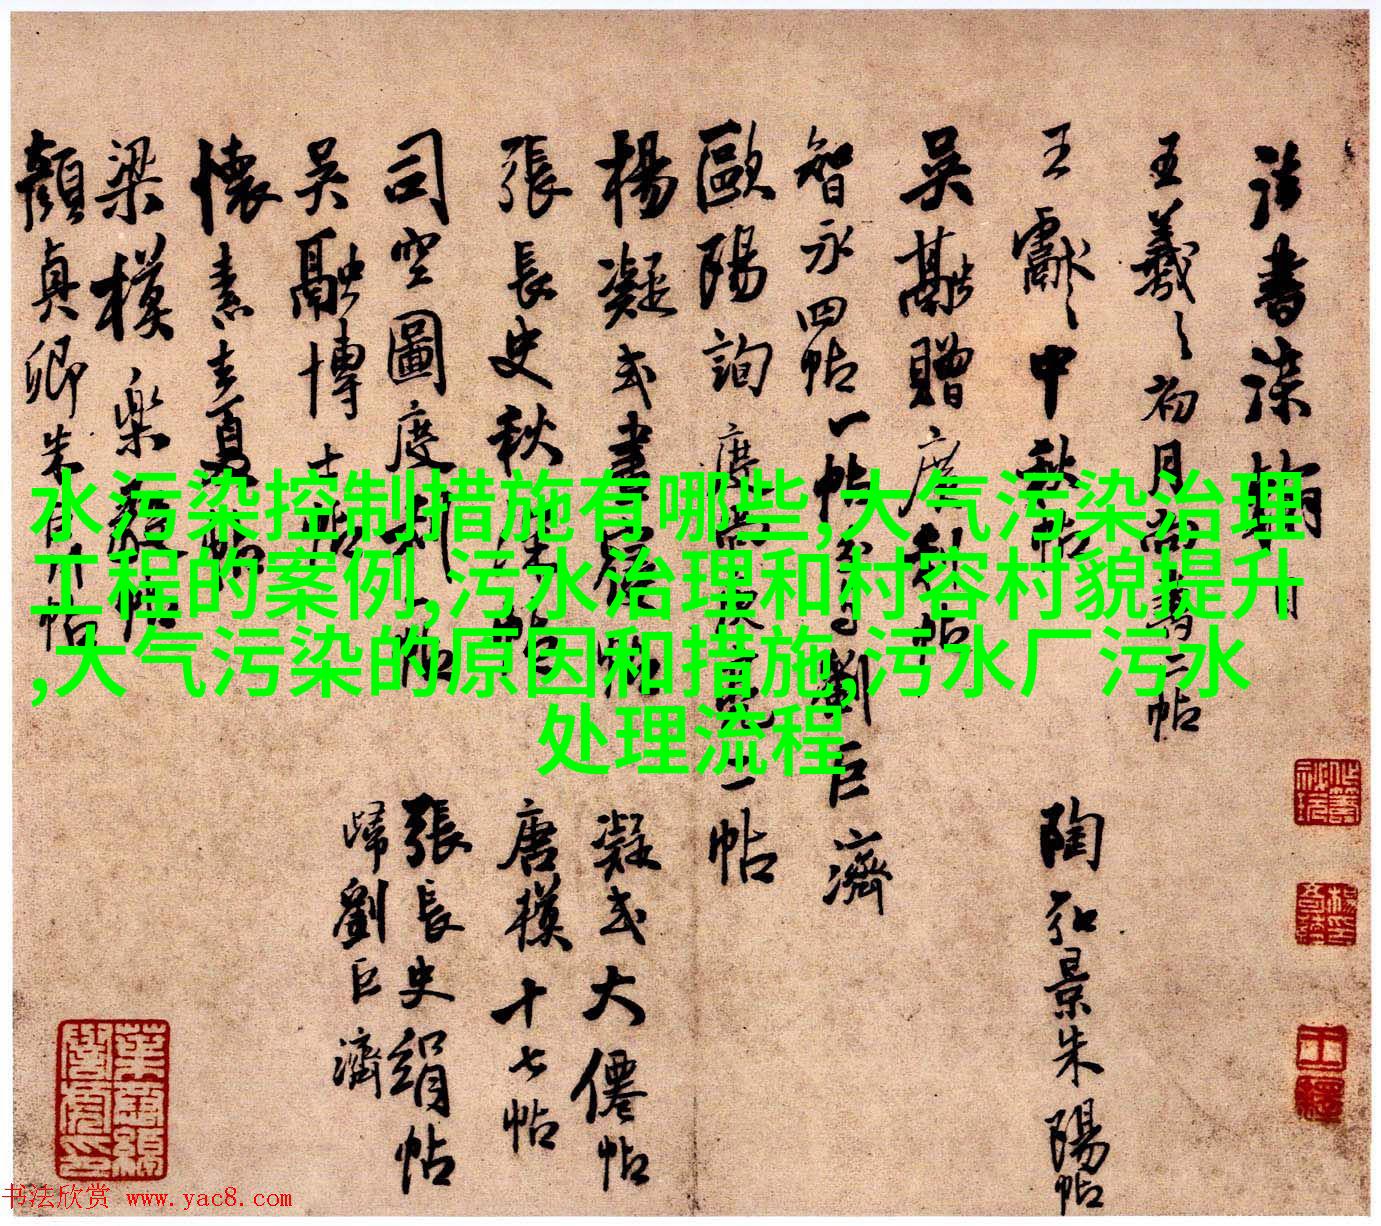 法書染翰
王羲之初月尚書二帖
王獻之中秋帖
陶弘景朱陽帖
吳融贈廣利帖
智永四帖一帖易劉巨濟
歐陽詢度尚庾亮二帖
楊凝式書屏帖
凝式大僊帖
張長史秋深帖
唐模十七帖
司空圖度利師帖
張長史絹帖
吳融博士帖
歸劉巨濟
懷素
梁模樂毅帖
顏真卿朱巨川帖
水污染控制措施有哪些,大气污染治理
工程的案例,污水治理和村容村貌提升
,大气污染的原因和措施,污水厂污水
处理流程
书法欣赏 www.yac8.com